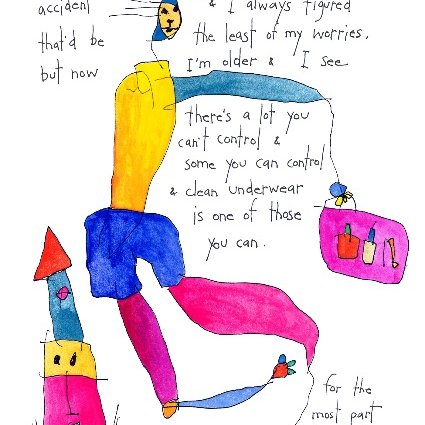 accident
that'd be
but now
& I always figured
the least of my worries.
I'm older & I see
there's a lot you
can't control &
some you can control
& clean underwear
is one of those
you can.
for the
most part